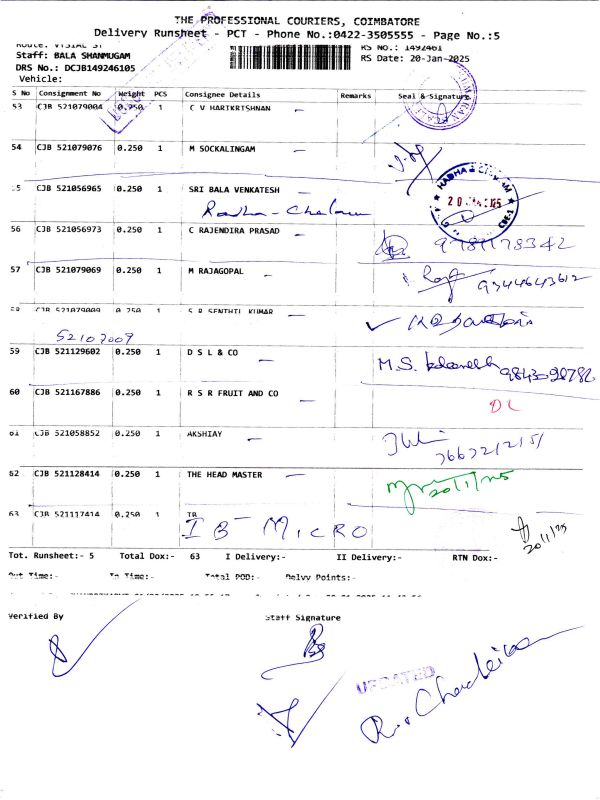 THE PROFESSIONAL COURIERS, COIMBATORE
Delivery Runsheet - PCT - Phone No.:0422-3505555 - Page No.:5
Staff: BALA SHANMUGAM
RS No.: 1492461
DRS No.: DCJB149246105
RS Date: 20-Jan-2025
Vehicle:
S No Consignment No Weight PCS Consignee Details Remarks Seal & Signature
53 CJB 521079004 0.250 1 C V HARIKRISHNAN
54 CJB 521079076 0.250 1 M SOCKALINGAM
55 CJB 521056965 0.250 1 SRI BALA VENKATESH
Radha - Chelam
56 CJB 521056973 0.250 1 C RAJENDIRA PRASAD
57 CJB 521079069 0.250 1 M RAJAGOPAL 9344643612
58 CJB 521079009 0.250 1 S R SENTHIL KUMAR
52107009
59 CJB 521129602 0.250 1 D S L & CO M.S.
60 CJB 521167886 0.250 1 R S R FRUIT AND CO DL
61 CJB 521058852 0.250 1 AKSHIAY
62 CJB 521128414 0.250 1 THE HEAD MASTER 20/1/25
63 CJB 521117414 0.250 1 IB
IB - MICRO 20/1/25
Tot. Runsheet:- 5 Total Dox:- 63 I Delivery:- II Delivery:- RTN Dox:-
Out Time:- In Time:- Total POD:- Delvy Points:-
Verified By Staff Signature
UPDATED